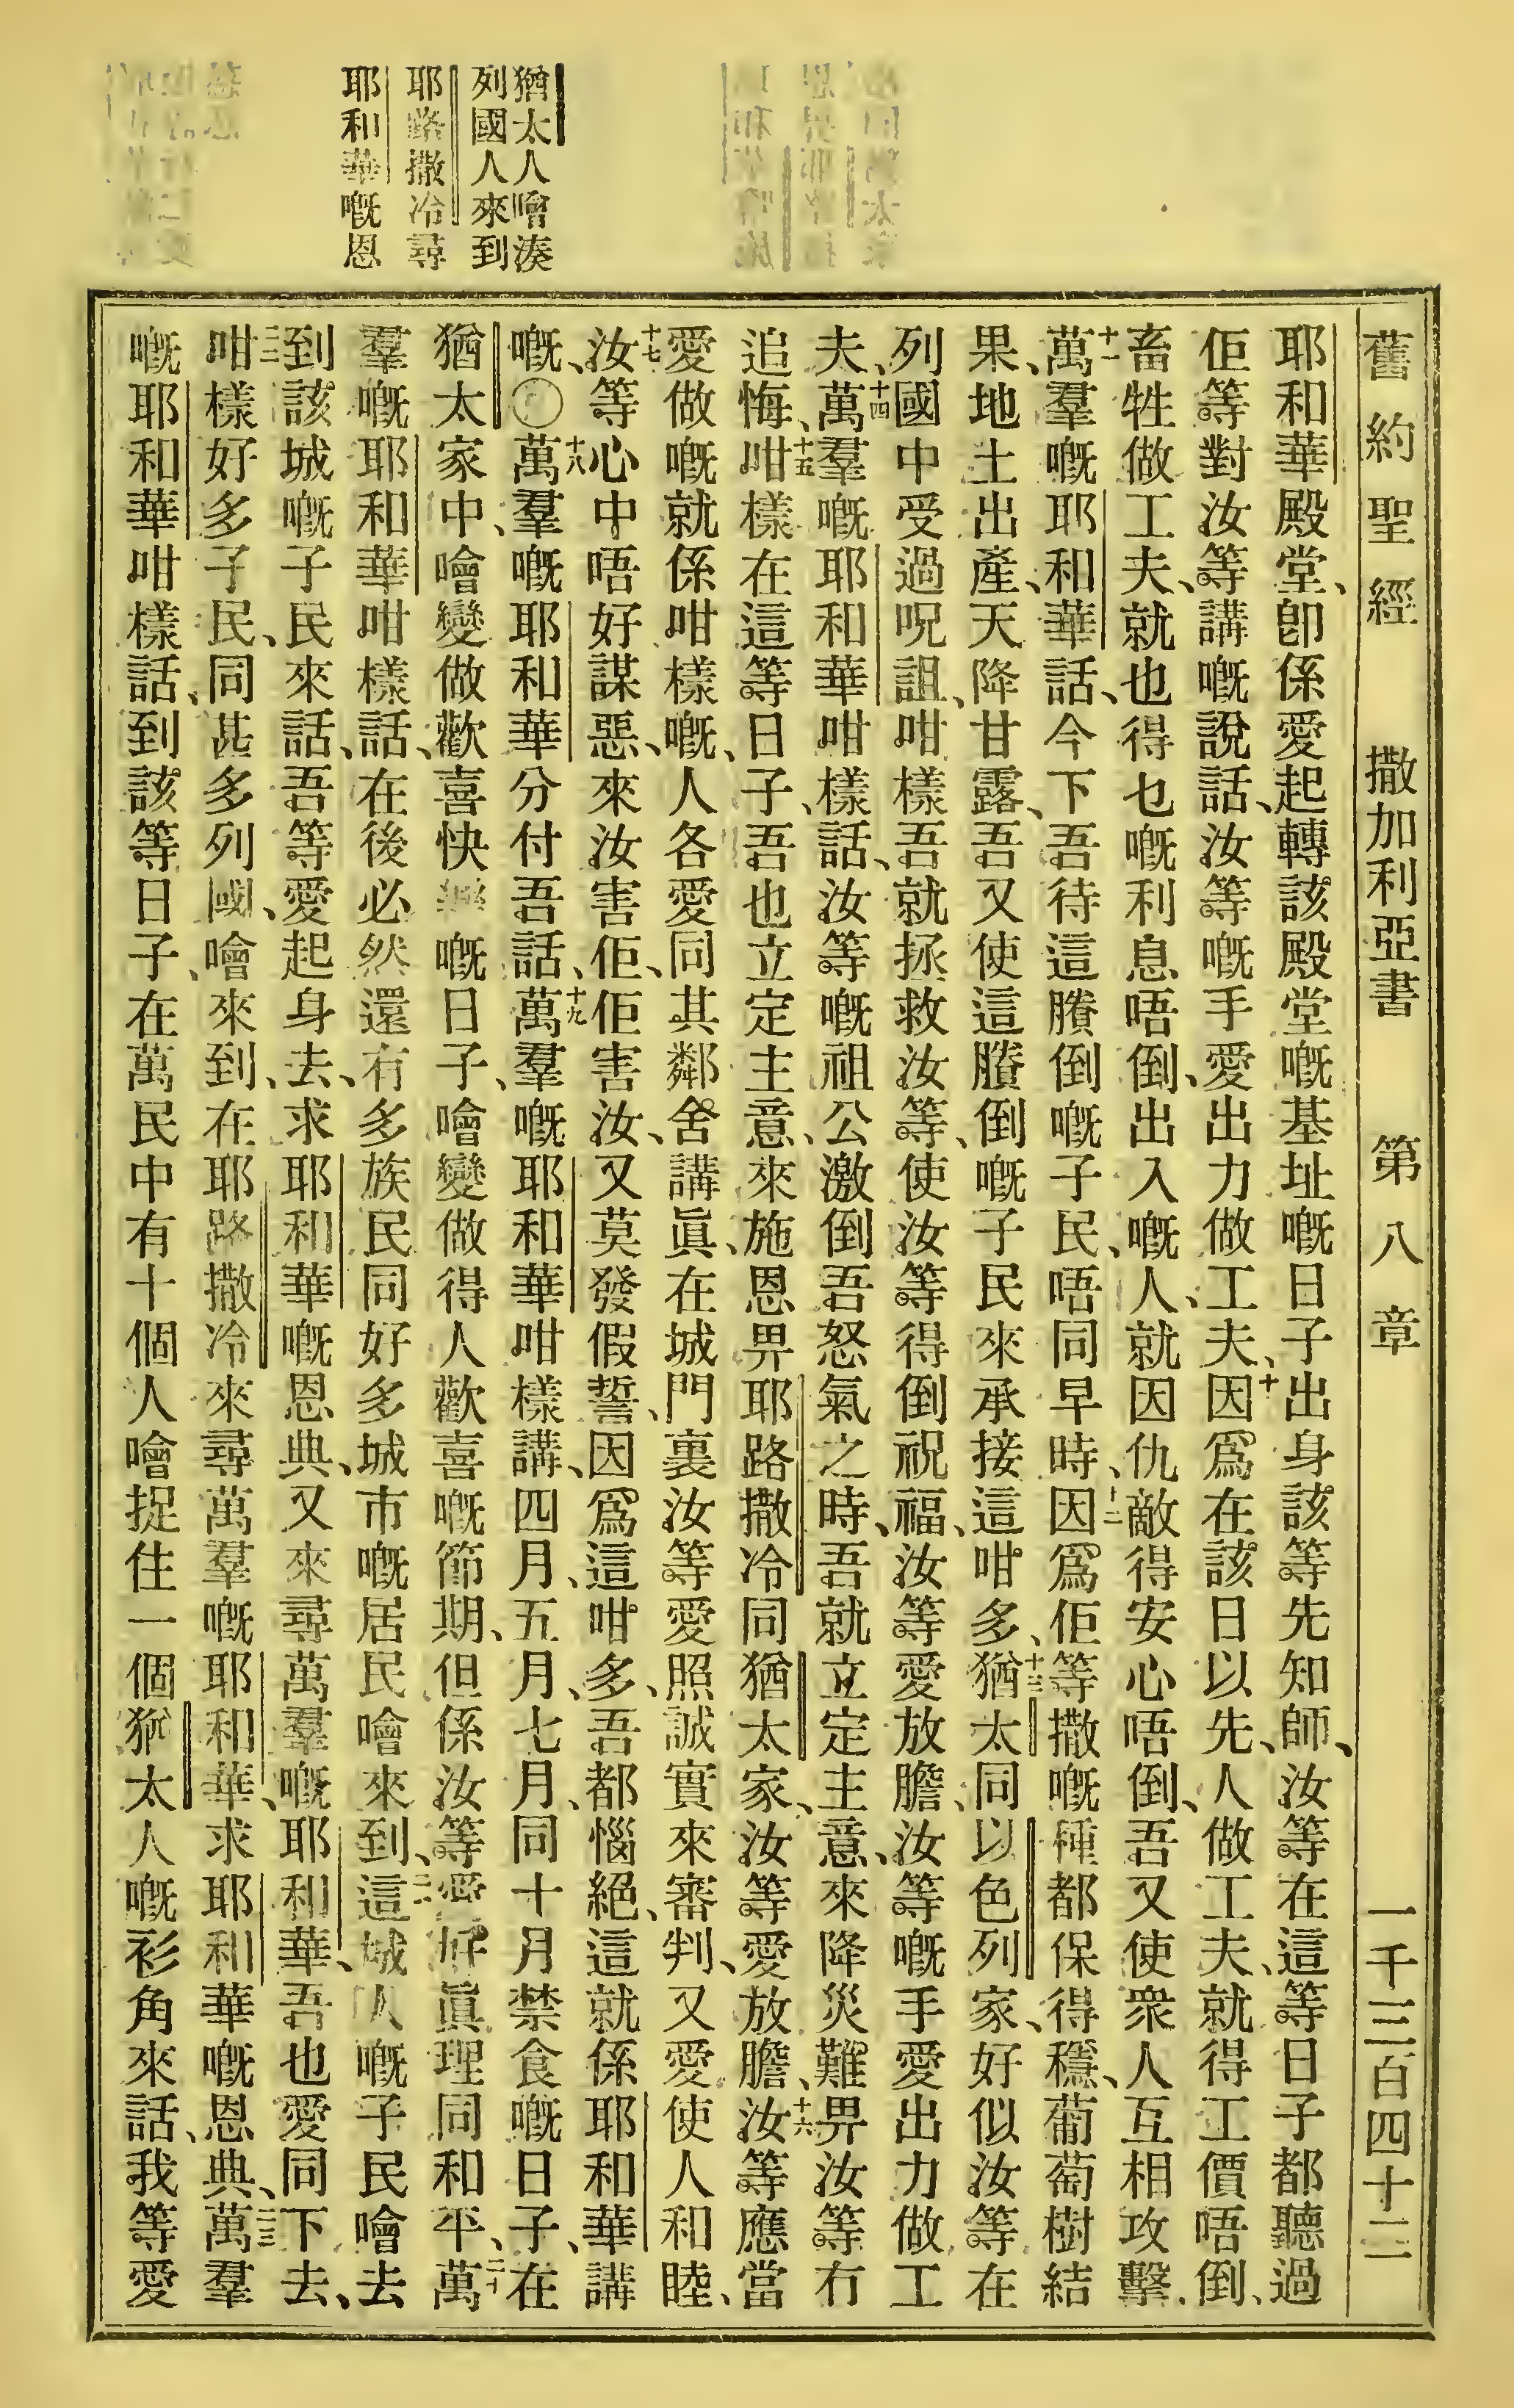 舊約聖經　撒加利亞書　第八章　一千三百四十二
猶太人噲湊
列國人來到
耶路撒冷尋
耶和華嘅恩
耶和華殿堂、卽係愛起轉該殿堂嘅基址嘅日子出身該等先知師、汝等在這等日子都聽過
佢等對汝等講嘅說話、汝等嘅手愛出力做工夫、十因爲在該日以先、人做工夫、就得工價唔倒、
畜牲做工夫、就也得乜嘅利息唔倒、出入嘅人、就因仇敵得安心唔倒、吾又使衆人互相攻擊、
十一萬羣嘅耶和華話、今下吾待這賸倒嘅子民、唔同早時、十二因爲佢等撒嘅種都保得穩、葡萄樹結
果、地土出產、天降甘露、吾又使這賸倒嘅子民來承接這咁多、十三猶太同以色列家、好似汝等在
列國中受過呪詛、咁樣吾就拯救汝等、使汝等得倒祝福、汝等愛放膽、汝等嘅手愛出力做工
夫、十四萬羣嘅耶和華咁樣話、汝等嘅祖公激倒吾怒氣之時、吾就立定主意、來降災難畀汝等冇
追悔、十五咁樣在這等日子、吾也立定主意、來施恩畀耶路撒冷同猶太家、汝等愛放膽、十六汝等應當
愛做嘅就係咁樣嘅、人各愛同其鄰舍講眞、在城門裏汝等愛照誠實來審判、又愛使人和睦、
十七汝等心中唔好謀惡、來汝害佢、佢害汝、又莫發假誓、因爲這咁多、吾都惱絕、這就係耶和華講
嘅、〇十八萬羣嘅耶和華分付吾話、十九萬羣嘅耶和華咁樣講、四月、五月、七月、同十月禁食嘅日子、在
猶太家中、噲變做歡喜快樂嘅日子、噲變做得人歡喜嘅節期、但係汝等愛好眞理同和平、二十萬
羣嘅耶和華咁樣話、在後必然還有多族民同好多城市嘅居民噲來到、二一這城人嘅子民噲去
到該城嘅子民來話、吾等愛起身去、求耶和華嘅恩典、又來尋萬羣嘅耶和華、吾也愛同下去、
二二咁樣好多子民、同甚多列國、噲來到、在耶路撒冷來尋萬羣嘅耶和華、求耶和華嘅恩典、二三萬羣
嘅耶和華咁樣話、到該等日子、在萬民中有十個人噲捉住一個猶太人嘅衫角來話、我等愛